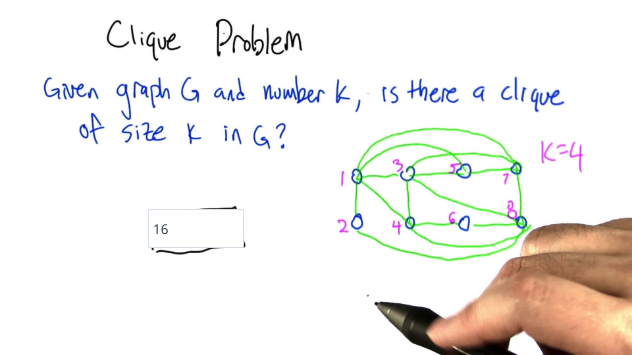 Clique Problem
Given graph G and number k, is there a clique
of size k in G?
K=4
1 3 5 7
2 4 6 8
16